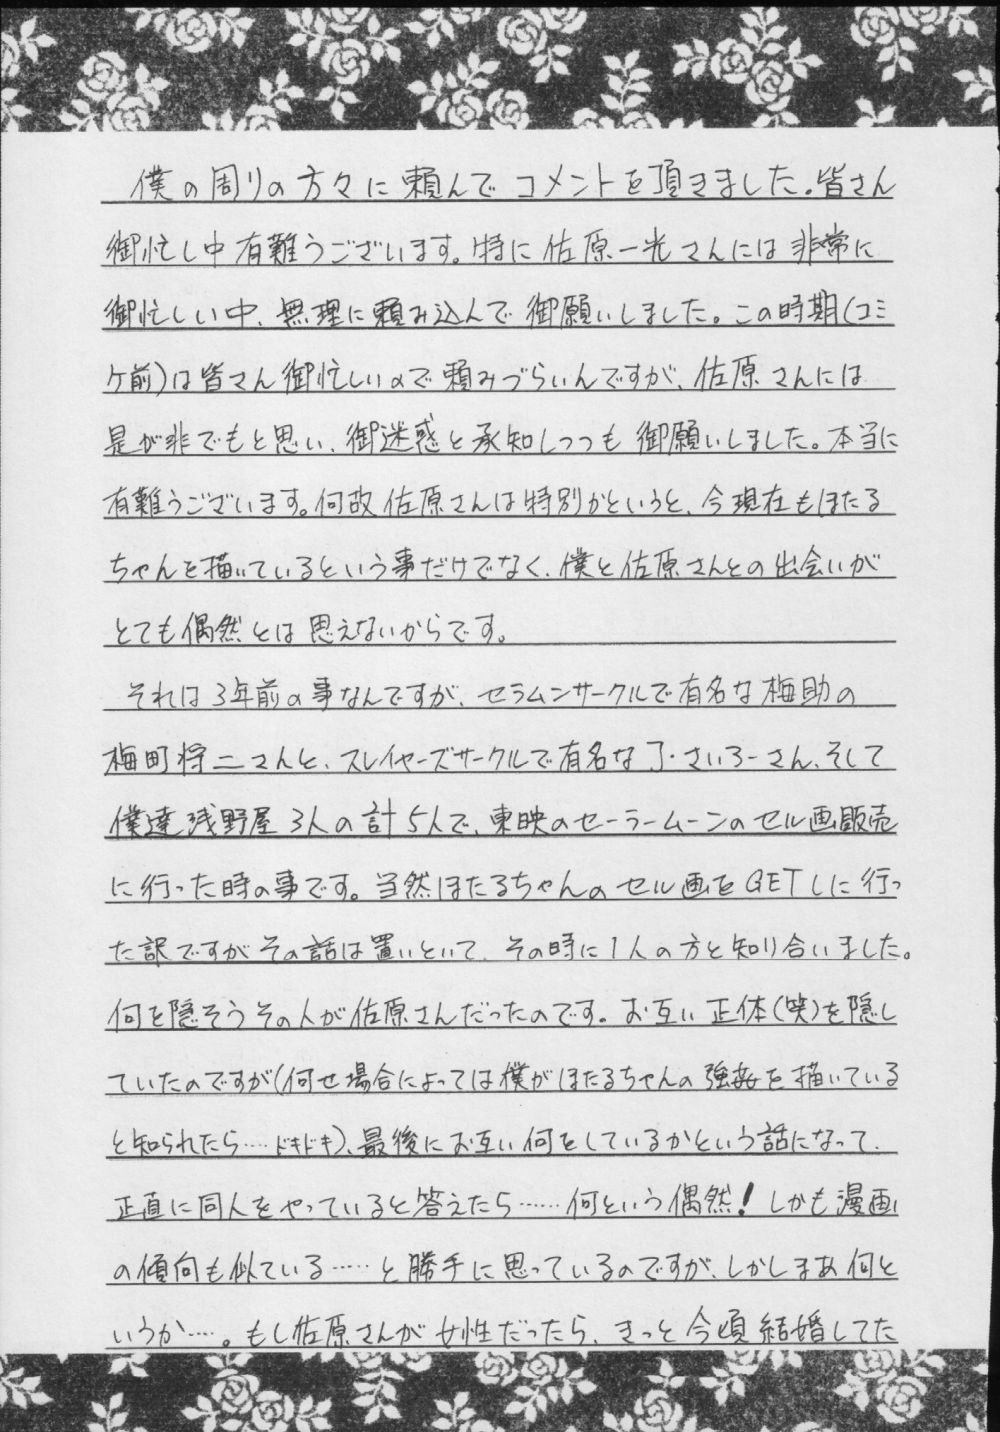 僕の周りの方々に頼んでコメントを頂きました。皆さん
御忙し中有難うございます。特に佐原一光さんには非常に
御忙しい中、無理に頼み込んで御願いしました。この時期(コミ
ケ前)は皆さん御忙しいので頼みづらいんですが、佐原さんには
是が非でもと思い、御迷惑と承知しつつも御願いしました。本当に
有難うございます。何故佐原さんは特別かというと、今現在もほたる
ちゃんを描いているという事だけでなく、僕と佐原さんとの出会いが
とても偶然とは思えないからです。
それは3年前の事なんですが、セラムンサークルで有名な梅助の
梅町将二さんと、スレイヤーズサークルで有名なJ・さいろーさん、そして
僕達浅野屋3人の計5人で、東映のセーラームーンのセル画販売
に行った時の事です。当然ほたるちゃんのセル画をGETしに行っ
た訳ですがその話は置いといて、その時に1人の方と知り合いました。
何を隠そうその人が佐原さんだったのです。お互い正体(笑)を隠し
ていたのですが(何せ場合によっては僕がほたるちゃんの強姦を描いている
と知られたら……ドキドキ)、最後にお互い何をしているかという話になって、
正直に同人をやっていると答えたら……何という偶然!しかも漫画
の傾向も似ている……と勝手に思っているのですが、しかしまあ何と
いうか…。もし佐原さんが女性だったら、きっと今頃結婚してた